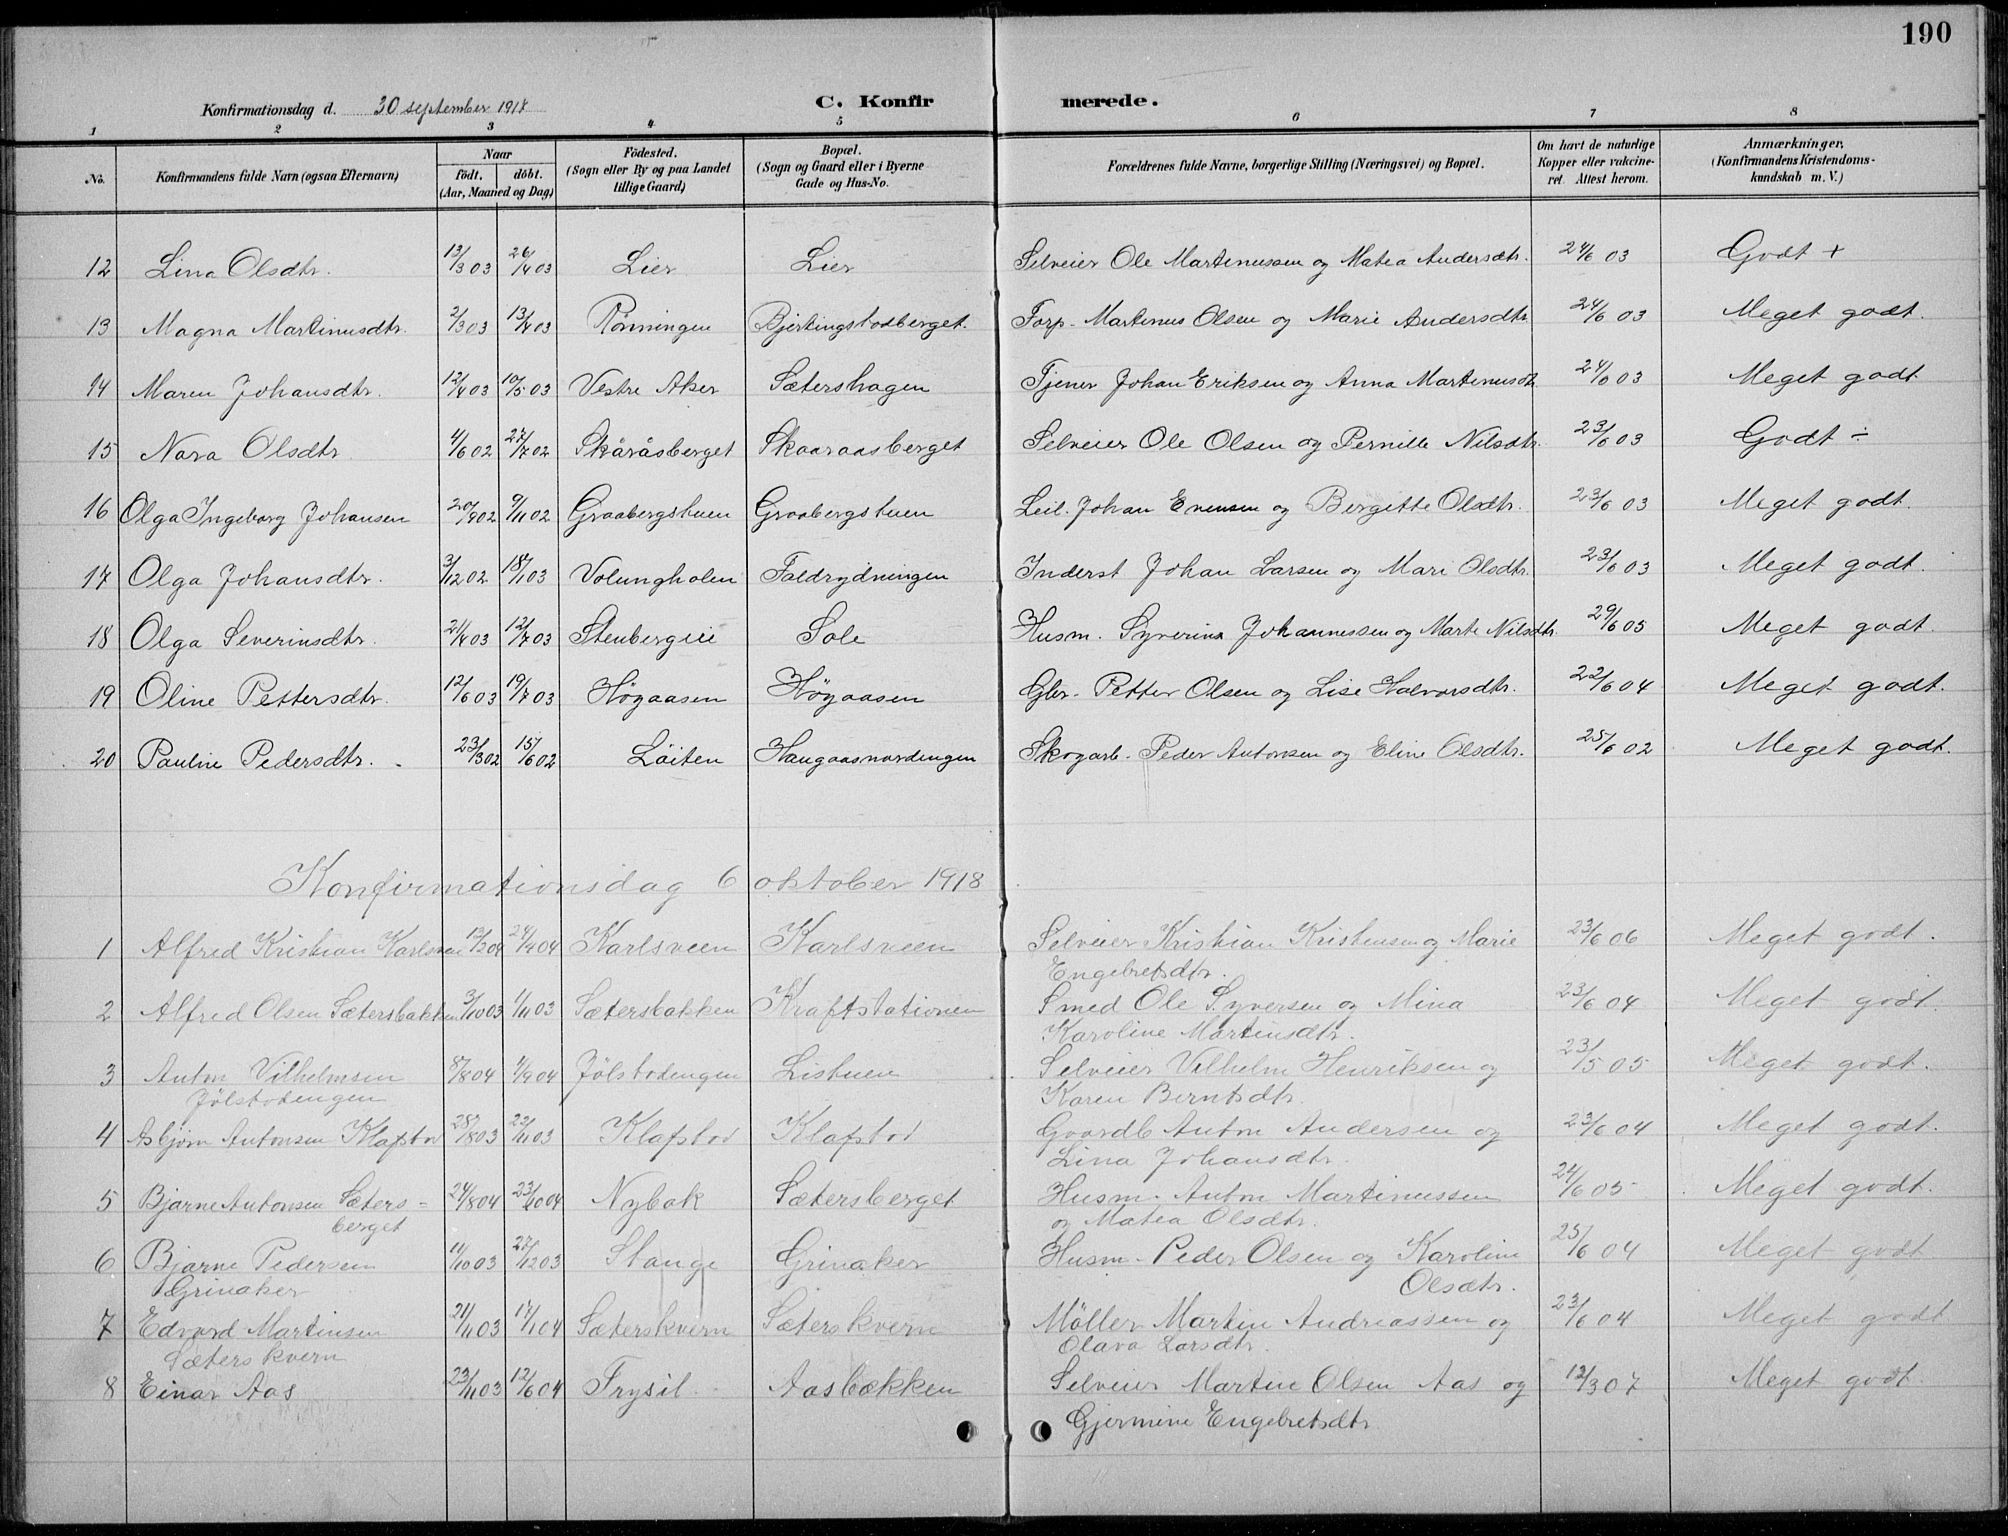 190
Konfirmationsdag d. 30 september 1918
C. Konfirmerede.
1 2 3 4 5 6 7 8
No. Konfirmandens fulde Navn (ogsaa Efternavn) Naar Födt. döbt. (Aar, Maaned og Dag) Födested. (Sogn eller By og paa Landet tillige Gaard) Bopæl. (Sogn og Gaard eller i Byerne Gade og Hus-No. Forældrenes fulde Navne, borgerlige Stilling (Næringsvei) og Bopæl. Om havt de naturlige Kopper eller vakcineret. Attest herom. Anmærkninger, (Konfirmandens Kristendomskundskab m. V.)
12 Lina Olsdtr. 13/3 03 26/4 03 Lier Lier Selveier Ole Martinussen og Matea Andersdtr. 24/6 03 Godt +
13 Magna Martinusdtr. 2/3 03 13/4 03 Rönningen Bjertingstadberget. Torp. Martinus Olsen og Marie Andersdtr. 24/6 03 Meget godt.
14 Maren Johansdtr. 12/4 03 10/5 03 Vestre Aker Sætershagen Tjener Johan Eriksen og Anna Martinusdtr. 24/6 03 Meget godt
15 Nora Olsdtr 4/6 02 27/7 02 Skåråsberget Skaaraasberget Selveier Ole Olsen og Pernille Nilsdtr. 23/6 03 Godt ÷
16 Olga Ingeborg Johansen 20/9 02 9/11 02 Graabergstuen Graabergstuen Leil. Johan Evensen og Bergitte Olsdtr. 23/6 03 Meget godt.
17 Olga Johansdtr. 3/12 02 18/1 03 Volungholen Faldrydningen Inderst Johan Larsen og Mari Olsdtr. 23/6 03 Meget godt.
18 Olga Severinsdtr. 21/4 03 12/7 03 Stenbergeie Sole Husm. Syverin Johannessen og Marte Nilsdtr. 29/6 05 Meget godt.
19 Oline Pettersdtr. 12/6 03 19/7 03 Högaasen Högaasen Gbr. Petter Olsen og Lise Halvorsdtr. 22/6 04 Meget godt.
20 Pauline Pedersdtr. 23/3 02 15/6 02 Löiten Haugaasnordengen Skogarb. Peder Antonsen og Eline Olsdtr. 25/6 02 Meget godt.
Konfirmationsdag 6 oktober 1918
1 Alfred Kristian Karlsveen 13/2 04 24/4 04 Karlsveen Karlsveen Selveier Kristian Kristensen og Marie 23/6 06 Meget godt.
Engebretsdtr.
2 Alfred Olsen Sætersbakken 3/10 03 1/11 03 Sætersbakken Kraftstationen Smed Ole Syversen og Mina 23/6 04 Meget godt.
Karoline Martinsdtr.
3 Anton Vilhelmsen 8/8 04 4/9 04 Jölstadengen Listuen Selveier Vilhelm Henriksen og 23/5 05 Meget godt.
Jölstadengen Karen Berntsdtr.
4 Asbjörn Antonsen Klafstad 28/8 03 22/11 03 Klafstad Klafstad Gaardb Anton Andersen og 23/6 04 Meget godt.
Lina Johansdtr.
5 Bjarne Antonsen Sæters- 24/8 04 23/10 04 Nybak Sætersberget Husm. Anton Martinussen 24/6 05 Meget godt.
berget og Matea Olsdtr.
6 Bjarne Pedersen 11/10 03 27/12 03 Stange Grinaker Husm. Peder Olsen og Karoline 25/6 04 Meget godt
Grinaker Olsdtr.
7 Edvard Martinsen 21/11 03 17/1 04 Sæterskvern Sæterskvern Möller Martin Andreassen og 23/6 04 Meget godt
Sæterskvern Olava Larsdtr.
8 Einar Aas 23/11 03 12/6 04 Trysil Aasbækken Selveier Martin Olsen Aas og 12/3 07 Meget godt.
Gjermine Engebretsdtr.